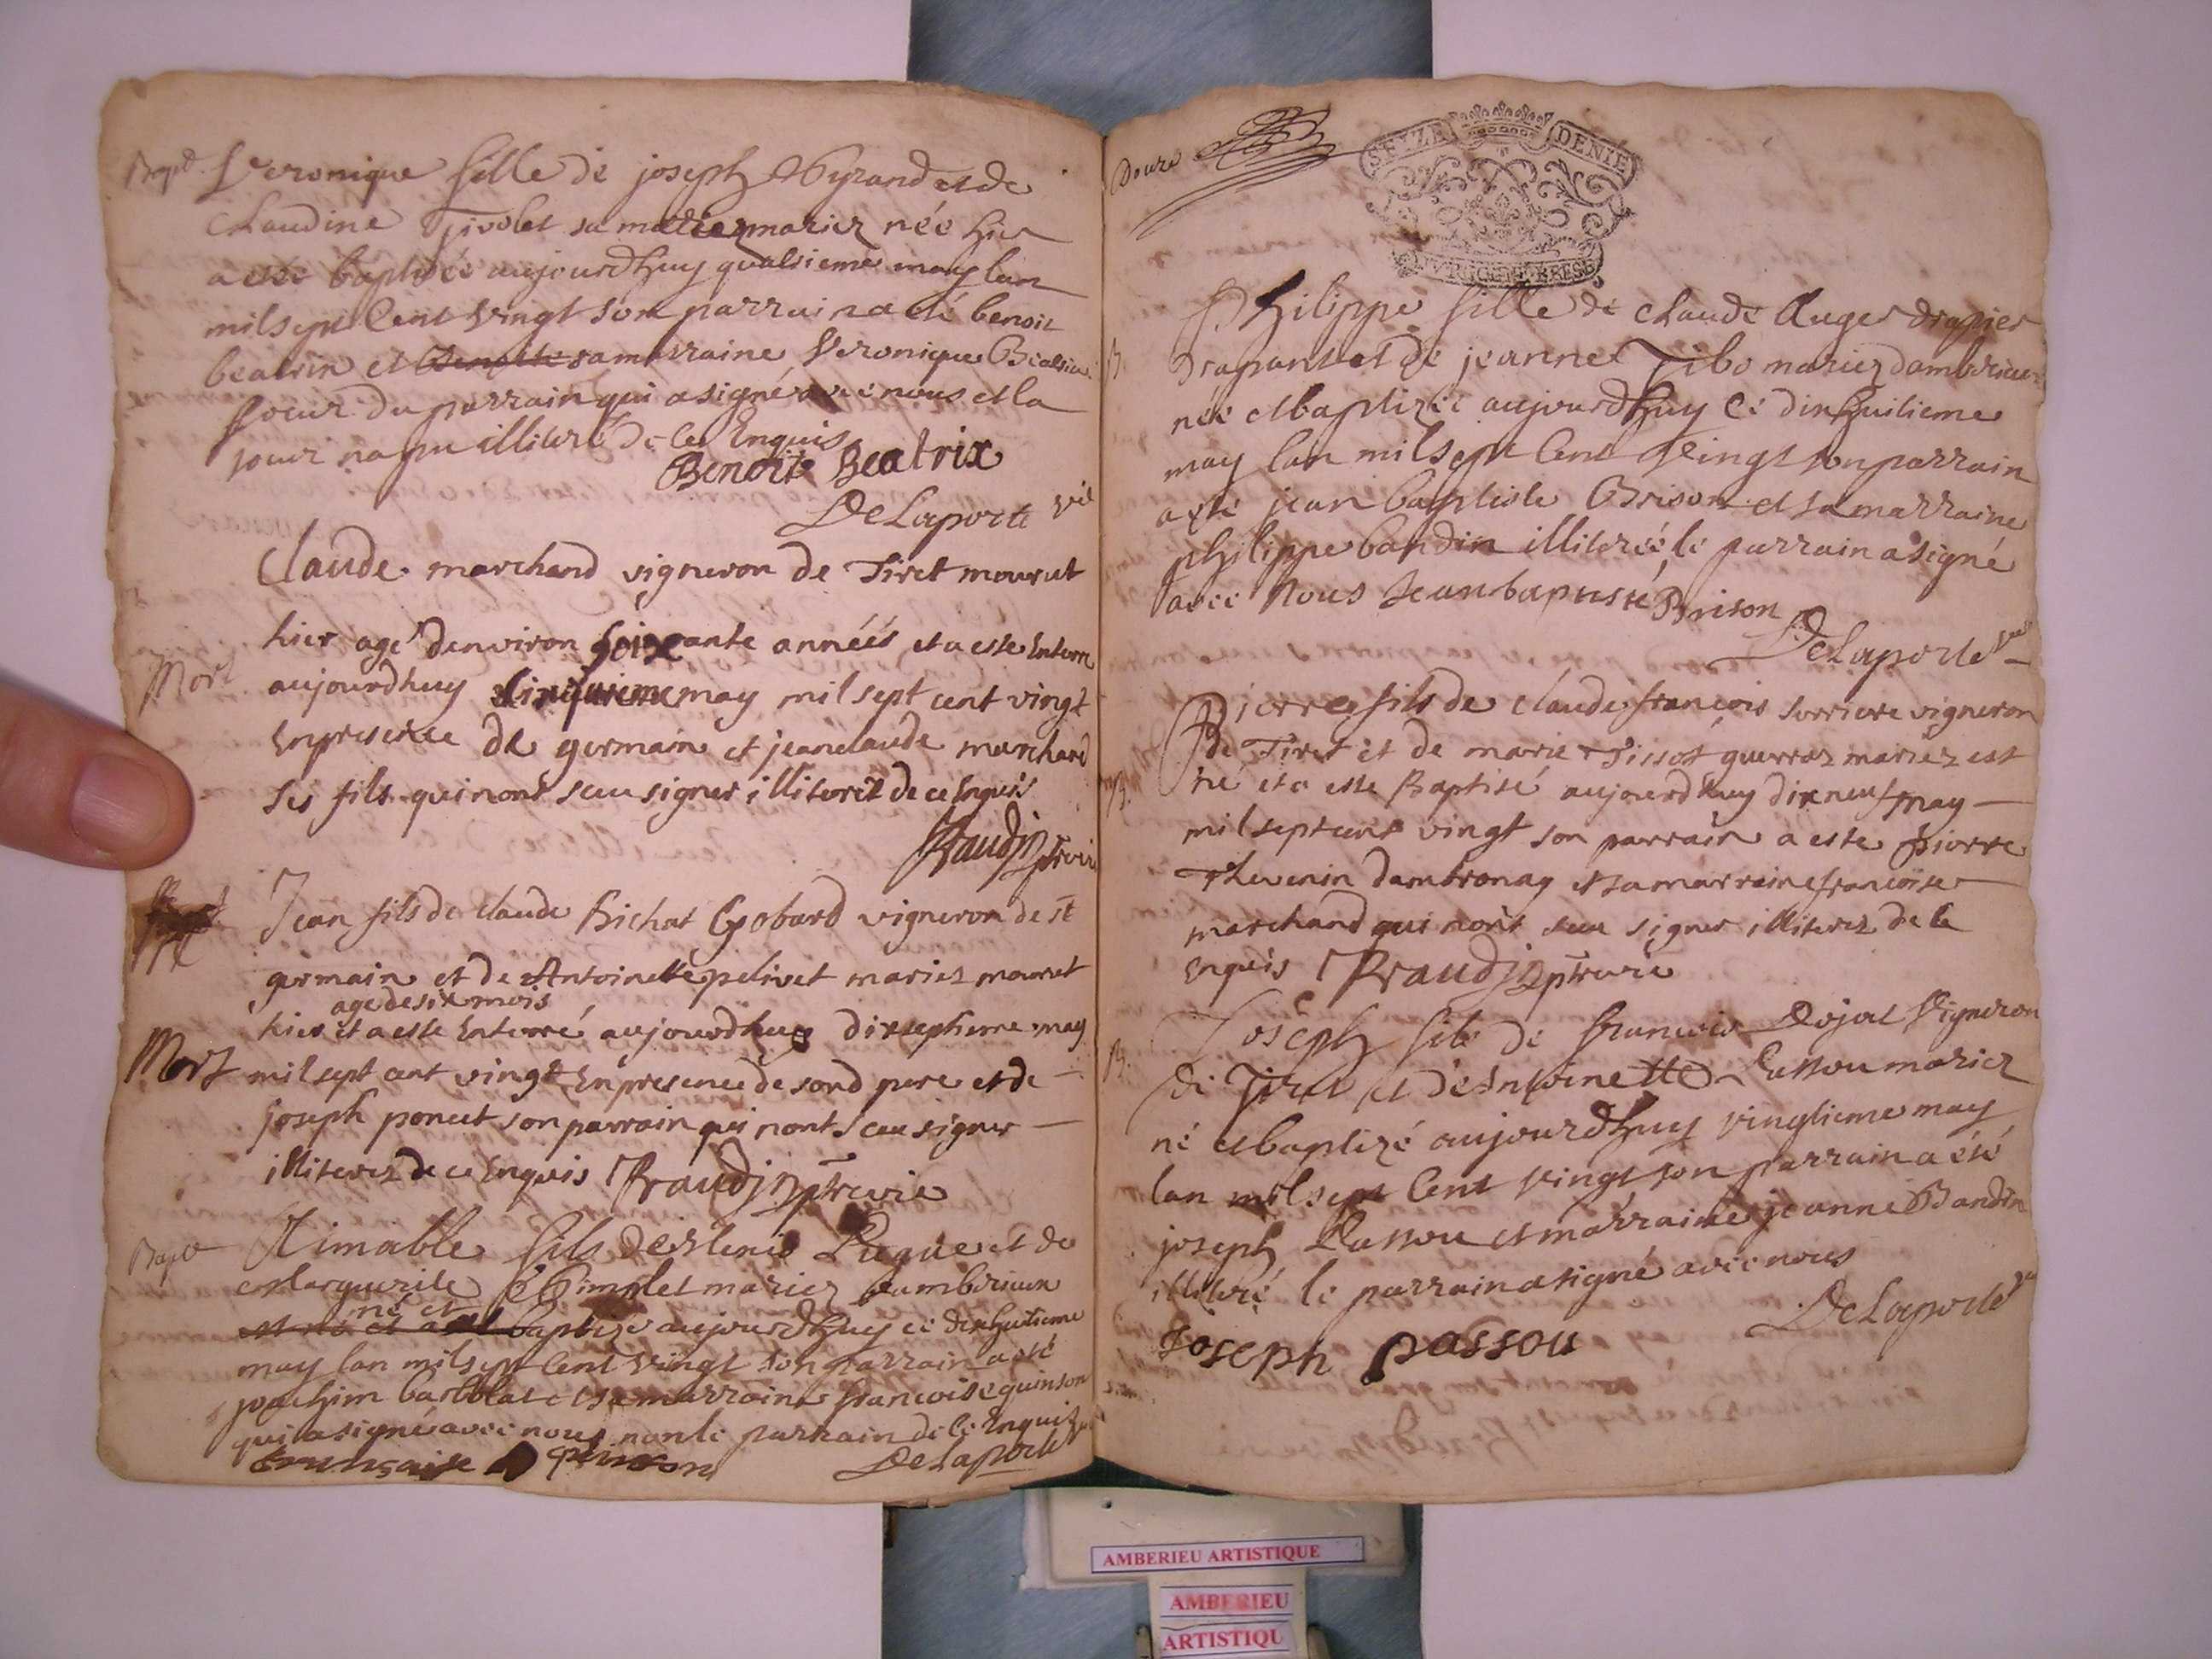 Bapt.
Veronique fille de joseph et de
Claudine Tivolet sa mariez née hier
a esté baptisée aujourdhuy quatrieme may lan
mil sept Cent Vingt son parrain a eté benoit
beatrix et Benoite sa marraine Veronique
soeur du parrain qui a signé avec nous et la
soeur na pu illiteré de ce Enquis
Benoite Beatrix
DeLaporte vic
Mort
Claude marchand vigneron de Tiret mourut
hier agé denviron soixante années et a esté Enterré
aujourdhuy Cinquieme may mil sept cent vingt
En presence de germain et jeanclaude marchand
ses fils qui nont sceu signer illiterez de ce Enquis
Mort
Jean fils de claude Bichat Gobard vigneron de st
germain et de Antoinette pelivet mariez mourut
age de six mois
hier et a esté Enterré aujourdhuy dixseptieme may
mil sept cent vingt En presence de sond pere et de
joseph poncet son parrain qui nont sceu signer
illiterez de ce Enquis
Bapt
Aimable fils de et de
Marguerite mariez dambrieux
né et
est né et a esté baptizé aujourdhuy ce dixhuitieme
may lan mil sept Cent Vingt son parrain a eté
joachim et sa marraine francoise quinson
qui a signé avec nous non le parrain de ce Enquis
quinson
DeLaporte
Douze
SEYZE DENIE
BOURGOGNE BRESSE
B.
Philippe fille de Claude Auger drapier
drapant et de jeanne Tibo mariez dambrieux
née et baptizée aujourdhuy ce dixhuitieme
may lan mil sept Cent Vingt son parrain
a eté jean baptiste Brison et sa marraine
philippe bandin illiterée, le parrain a signé
avec Nous Jean baptiste Brison
DeLaporte vic
B.
Pierre fils de claude françois sorriere vigneron
de Tiret et de marie Tissot guerraz mariez est
né et a esté Baptisé aujourdhuy dixneuf may
mil sept cent vingt son parrain a esté pierre
Thevenin dambronay et sa marraine françoise
marchand qui nont sceu signer illiterez de ce
Enquis
B.
Joseph fils de francois Dojat Vigneron
de Tiret et d'Antoinette Passou mariez
né et baptizé aujourdhuy vingtieme may
lan mil sept Cent Vingt son parrain a été
joseph Passou et marraine jeanne Bandin
illiteré le parrain a signé avec nous
DeLaporte
Joseph passou
AMBERIEU ARTISTIQUE
AMBERIEU
ARTISTIQU